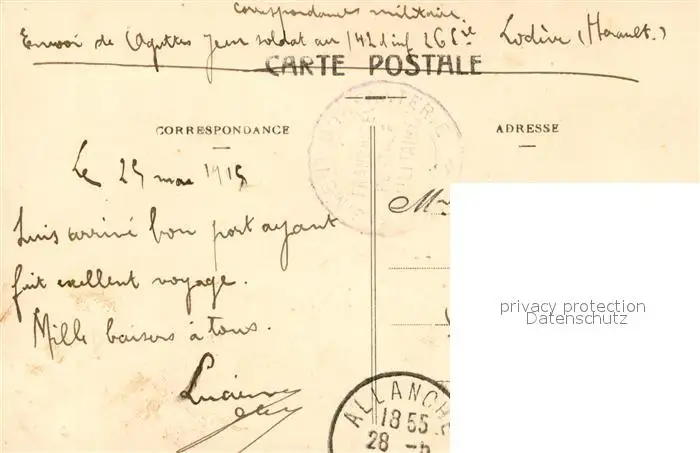 Correspondance militaire.
Envoi de Jean soldat au 142 d'inf 26 Cie Lodève (Hérault.)
CARTE POSTALE
CORRESPONDANCE
ADRESSE
Le 25 mai 1915
M
Suis arrivé bon port ayant
fait exellent voyage.
Mille baisers à tous.
privacy protection
Datenschutz
ALLANCHE
18 55
28 -5